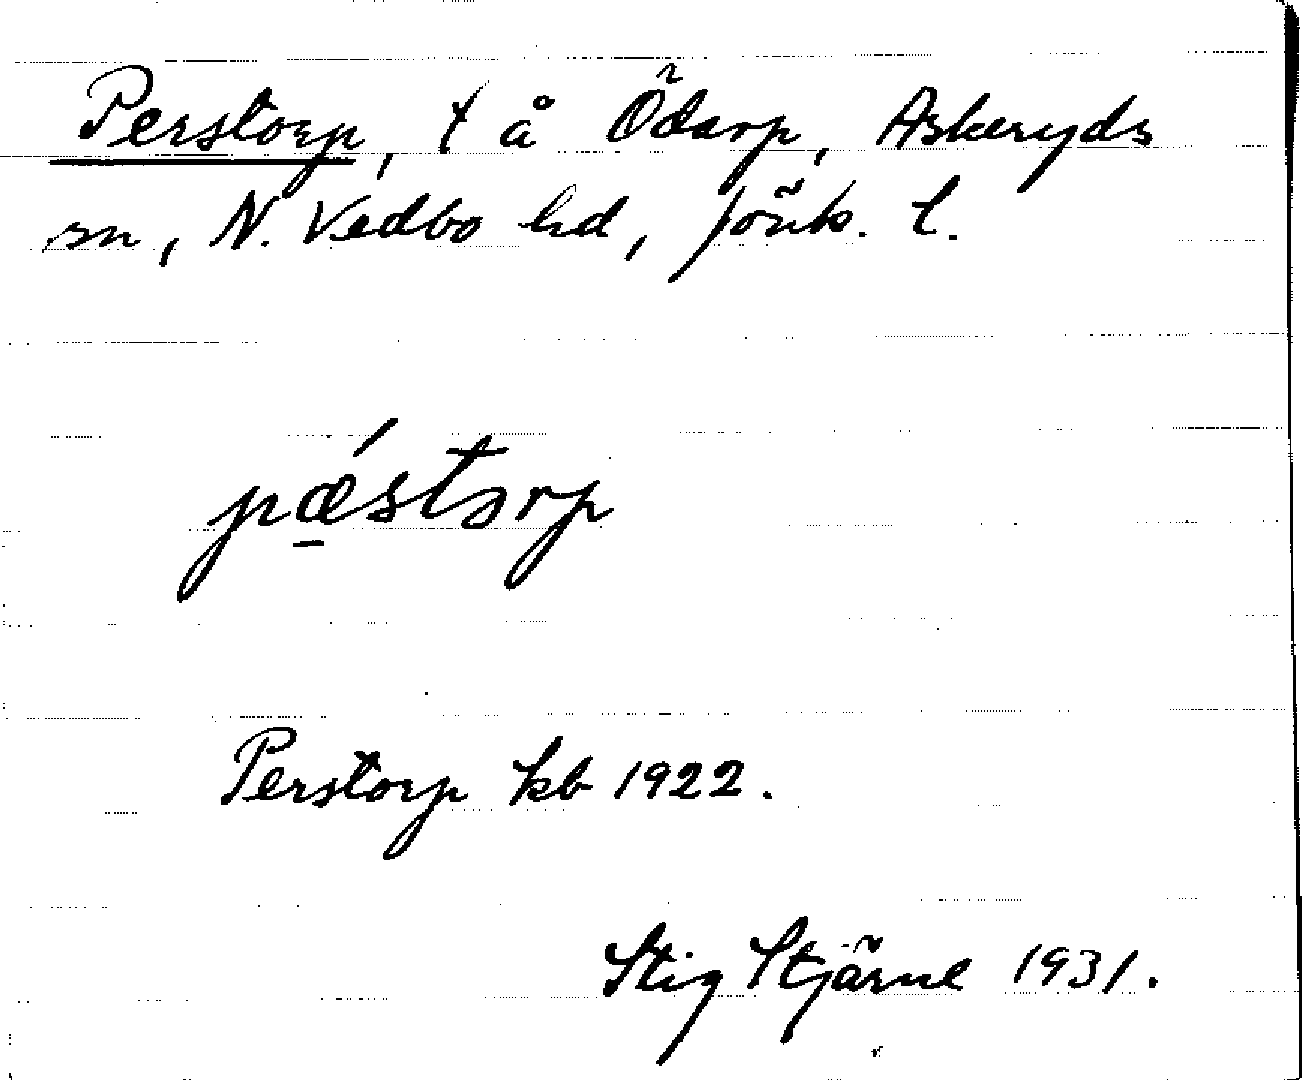 Perstorp, t å Ödarp, Askeryds
sn, N. Vedbo hd, Jönk. l.
pǽ̱storp
Perstorp kb 1922.
Stig Stjärne 1931.